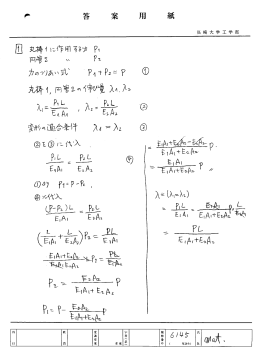 答案用紙
長崎大学工学部
1 丸棒1に作用する力 P₁
円管2 〃 P₂
力のつりあい式 P₁+P₂=P ①
丸棒1,円管2の伸び量 λ₁,λ₂
λ₁=P₁L/E₁A₁ , λ₂=P₂L/E₂A₂ ②
変形の適合条件 λ₁=λ₂ ③
②を③に代入
P₁L/E₁A₁ = P₂L/E₂A₂ ④
①より P₁=P-P₂
④に代入
(P-P₂)L/E₁A₁ = P₂L/E₂A₂
(L/E₁A₁ + L/E₂A₂)P₂ = PL/E₁A₁
P₂ = E₂A₂/(E₁A₁+E₂A₂) P
P₁=P- E₂A₂/(E₁A₁+E₂A₂) P
= (E₁A₁+E₂A₂-E₂A₂)/(E₁A₁+E₂A₂) P.
= E₁A₁/(E₁A₁+E₂A₂) P
λ=(λ₁=λ₂)
= P₁L/E₁A₁ = E₁A₁/(E₁A₁+E₂A₂) P L/E₁A₁
= PL/(E₁A₁+E₂A₂)
6145
mat.